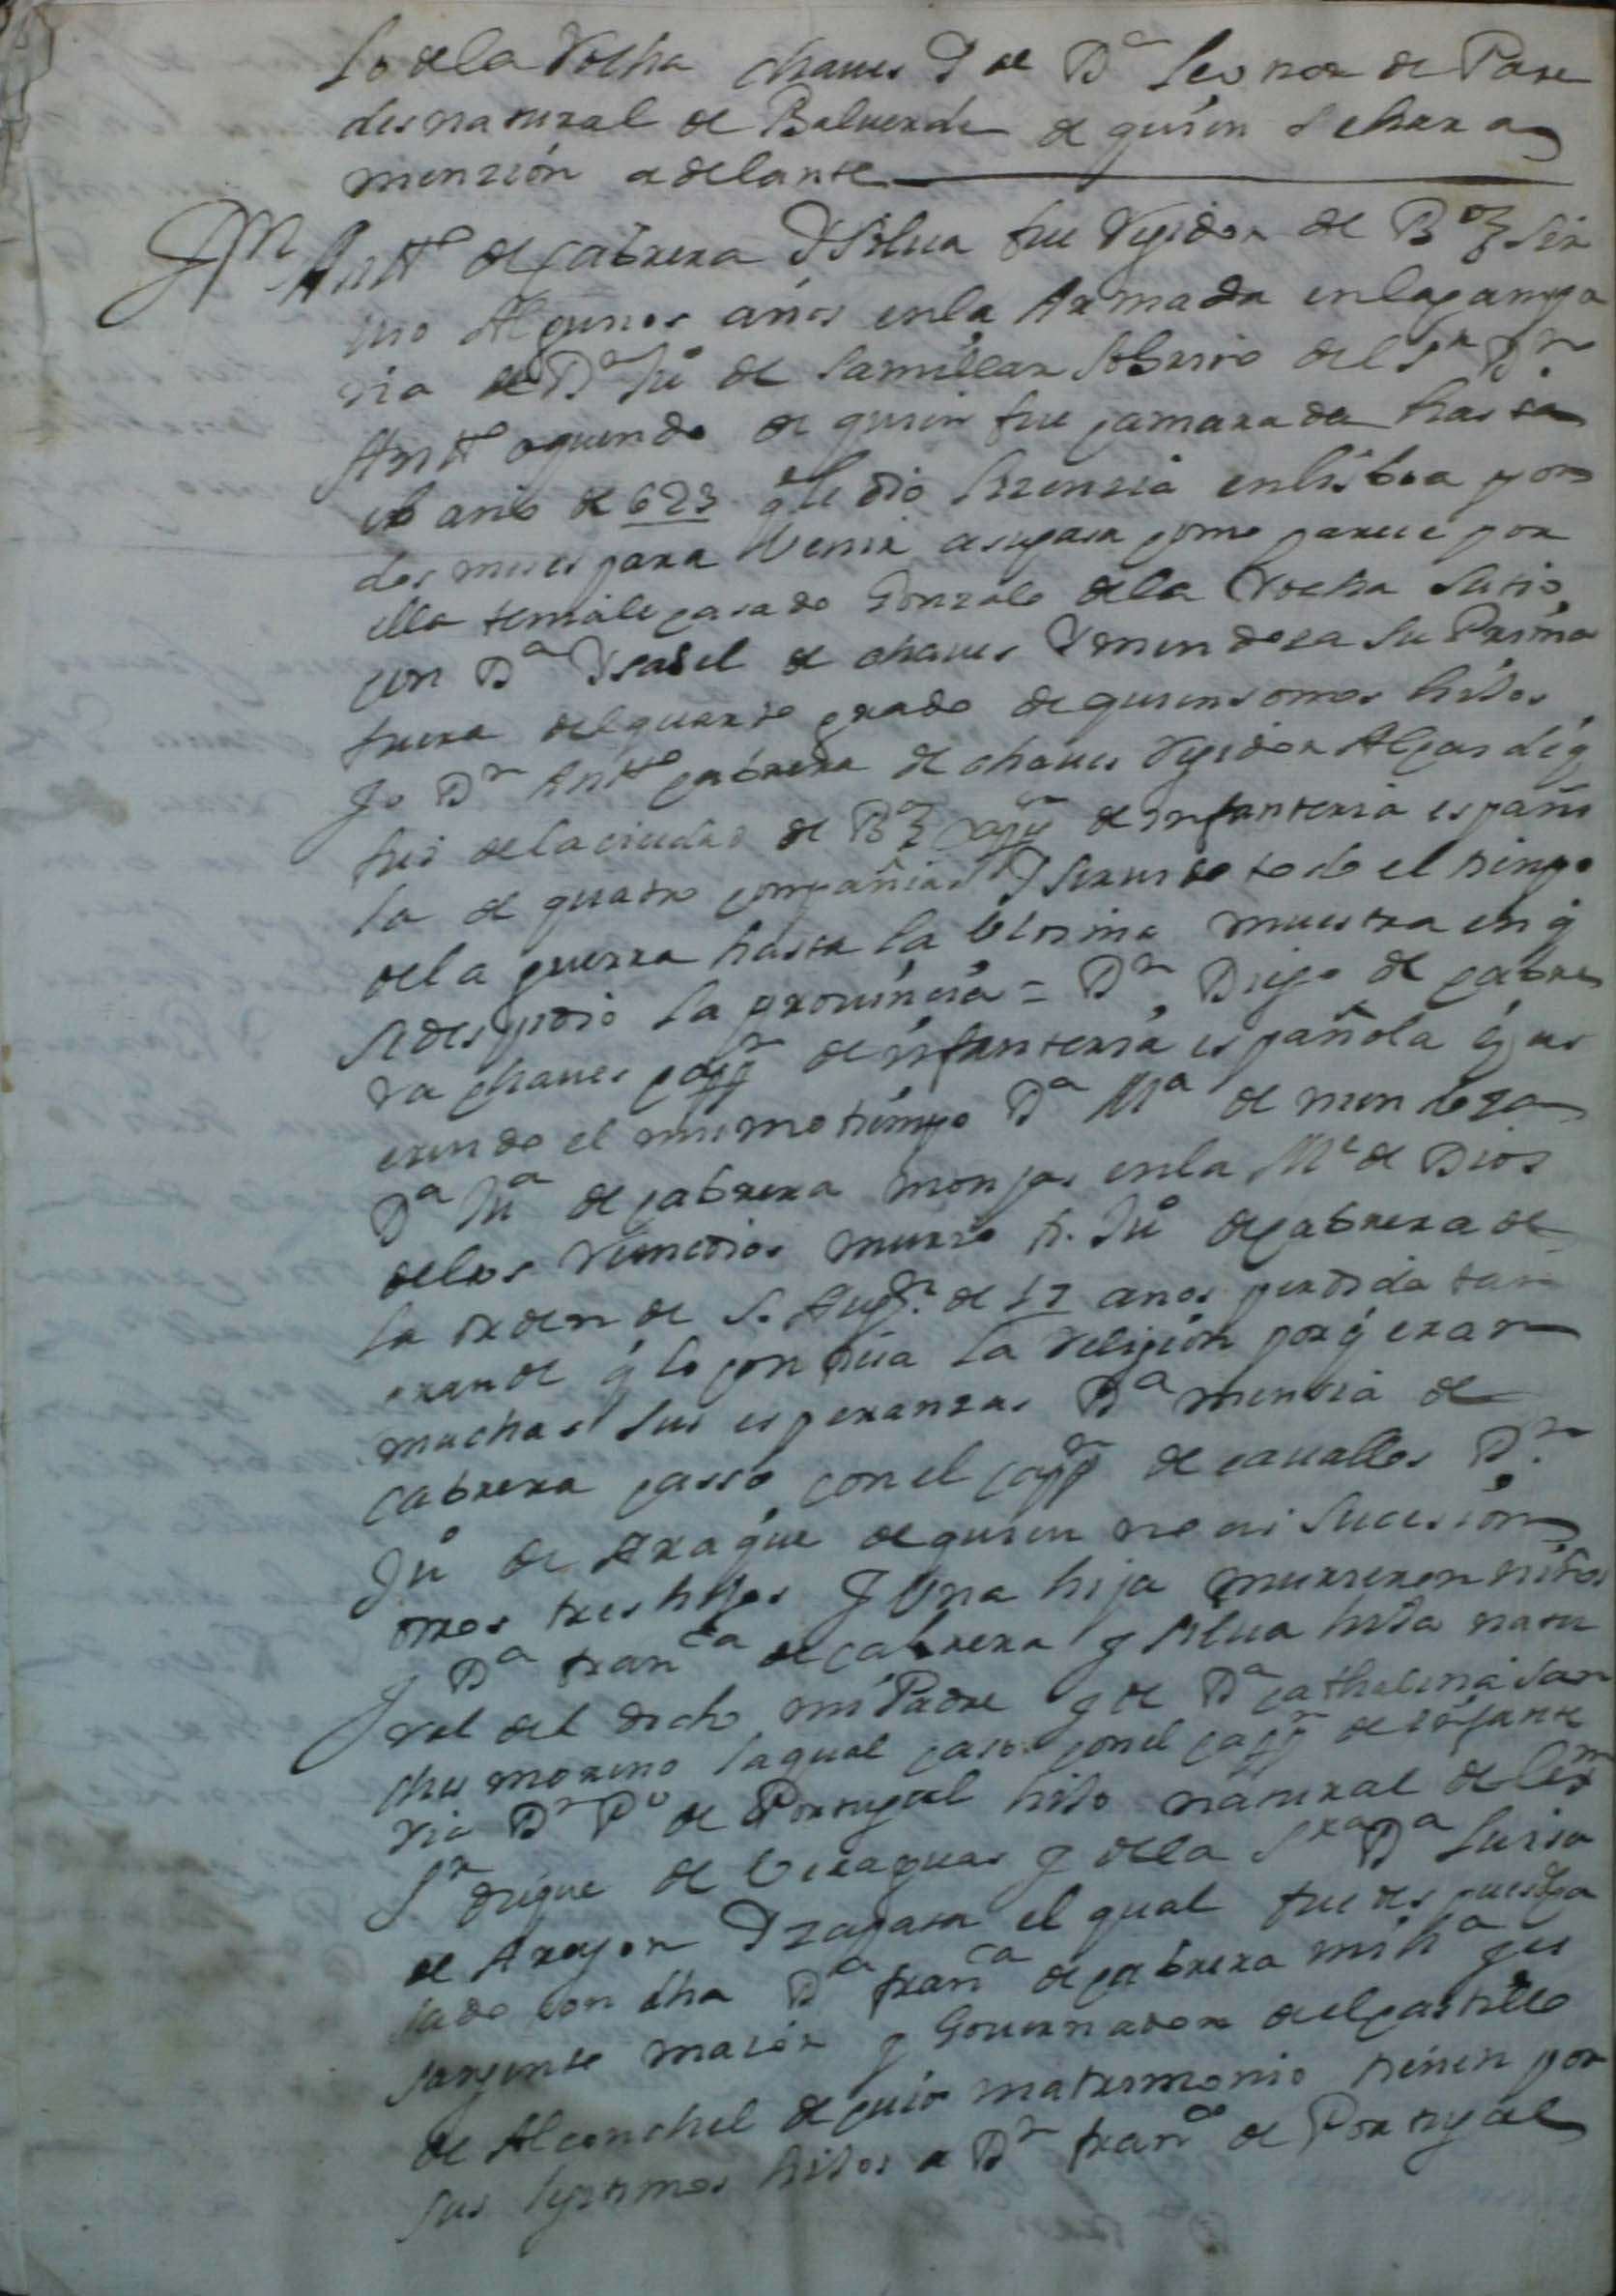 lo de la Rocha chaues Y de Dª Leonor de Pare
des natural de Baluerde de quien se hara
menzion adelante
Antt.º de cabrera Y silua fue Regidor de Bºz sir
uio Algunos años en la Armada en la compa
ñia de Dⁿ Juº de samillan sobrino del Sr Dⁿ.
Antt.º oquendo de quien fue camarada hasta
el año de 623 q le dio lizenzia en lisboa por
dos meses para Venir a su casa como parece por
ella teniale casado Gonzalo de la Rocha su tio
con Dª Ysabel de chaues Y mendoza su Prima
fuera del quarto grado de quien somos hijos
Yo Dⁿ Antt.º cabrera de chaues Regidor Alcalde q
fui de la ciudad de Bºz cappⁿ de infanteria españo
la de quatro compañias Y siruiendo todo el tiempo
de la guerra hasta la Vltima muestra en q
se despidio la prouincia = Dⁿ. Diego de cabre
ra chaues cappⁿ de infanteria española q siru
el mismo tiempo Dª Mª de mendoza
Dª Juª de cabrera monjas en la Me de Dios
de los Remedios murio fr. Juº de cabrera de
la orden de S. Augⁿ. de 17 años perdida tan
grande q lo confiesa la Religion porq eran
muchas sus esperanzas Dª menzia de
cabrera casso con el cappⁿ de cauallos Dⁿ.
Juº de Araque de quien no ai sucesion
otros tres hijos Y Vna hija murieron niños
Y Dª franca de cabrera y silua hija natu
ral del dicho mi Padre y de Dª cathelina san
chez moreno la qual caso con el cappⁿ de infante
ria Dⁿ Pº de Portugal hijo natural del exmº
Sr duque de Veraguas y de la Sra Dª Luisa
de Aragon Y zapata el qual fue despues de ca
sado con dha Dª franca de cabrera mi hª
sargento maior y Gouernador del castillo
de Alconchel de cuio matrimonio tienen por
sus lejitimos hijos a Dⁿ franco de Portugal